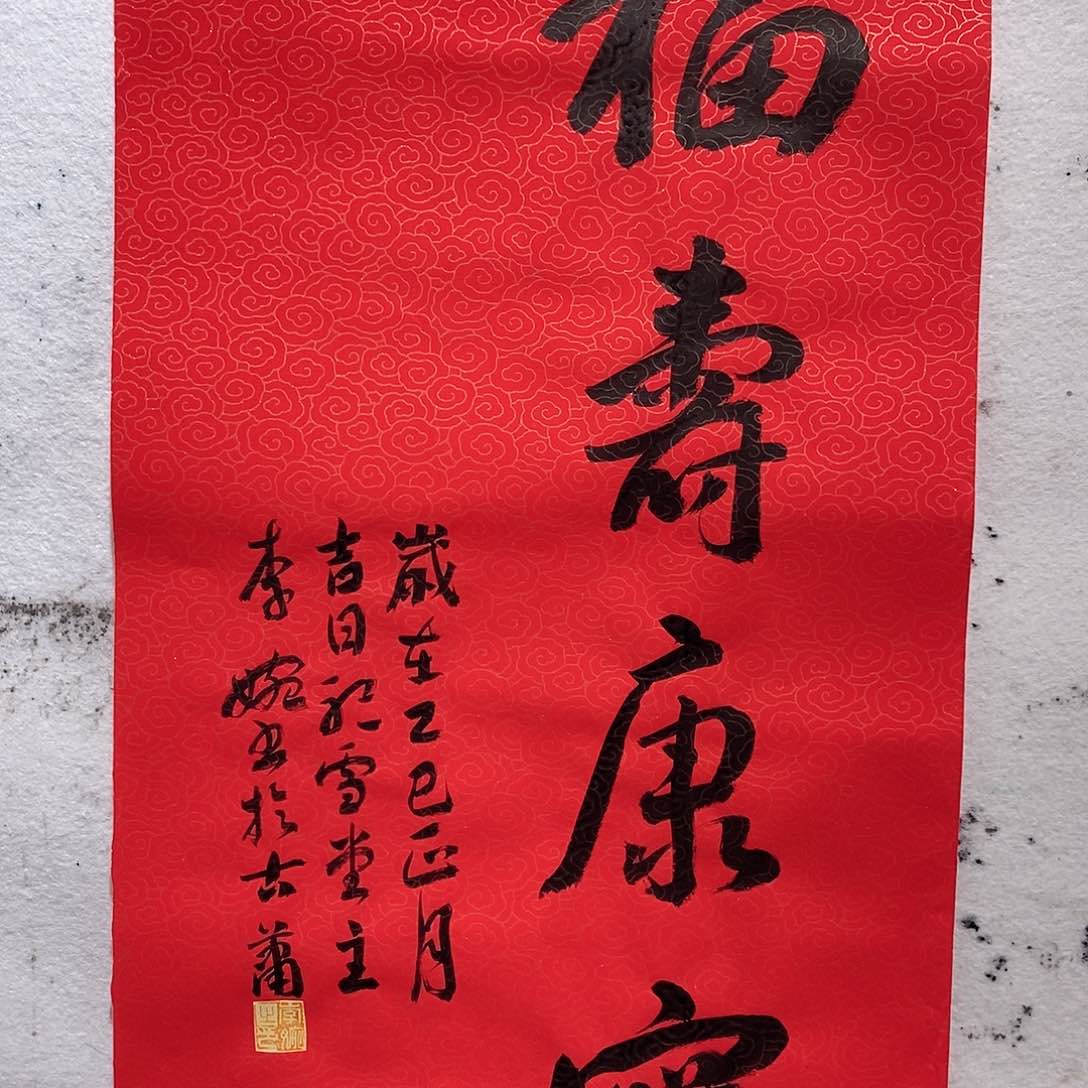 福壽康寧
歲在乙巳正月
吉日於雪堂主
李婉書於古蕭